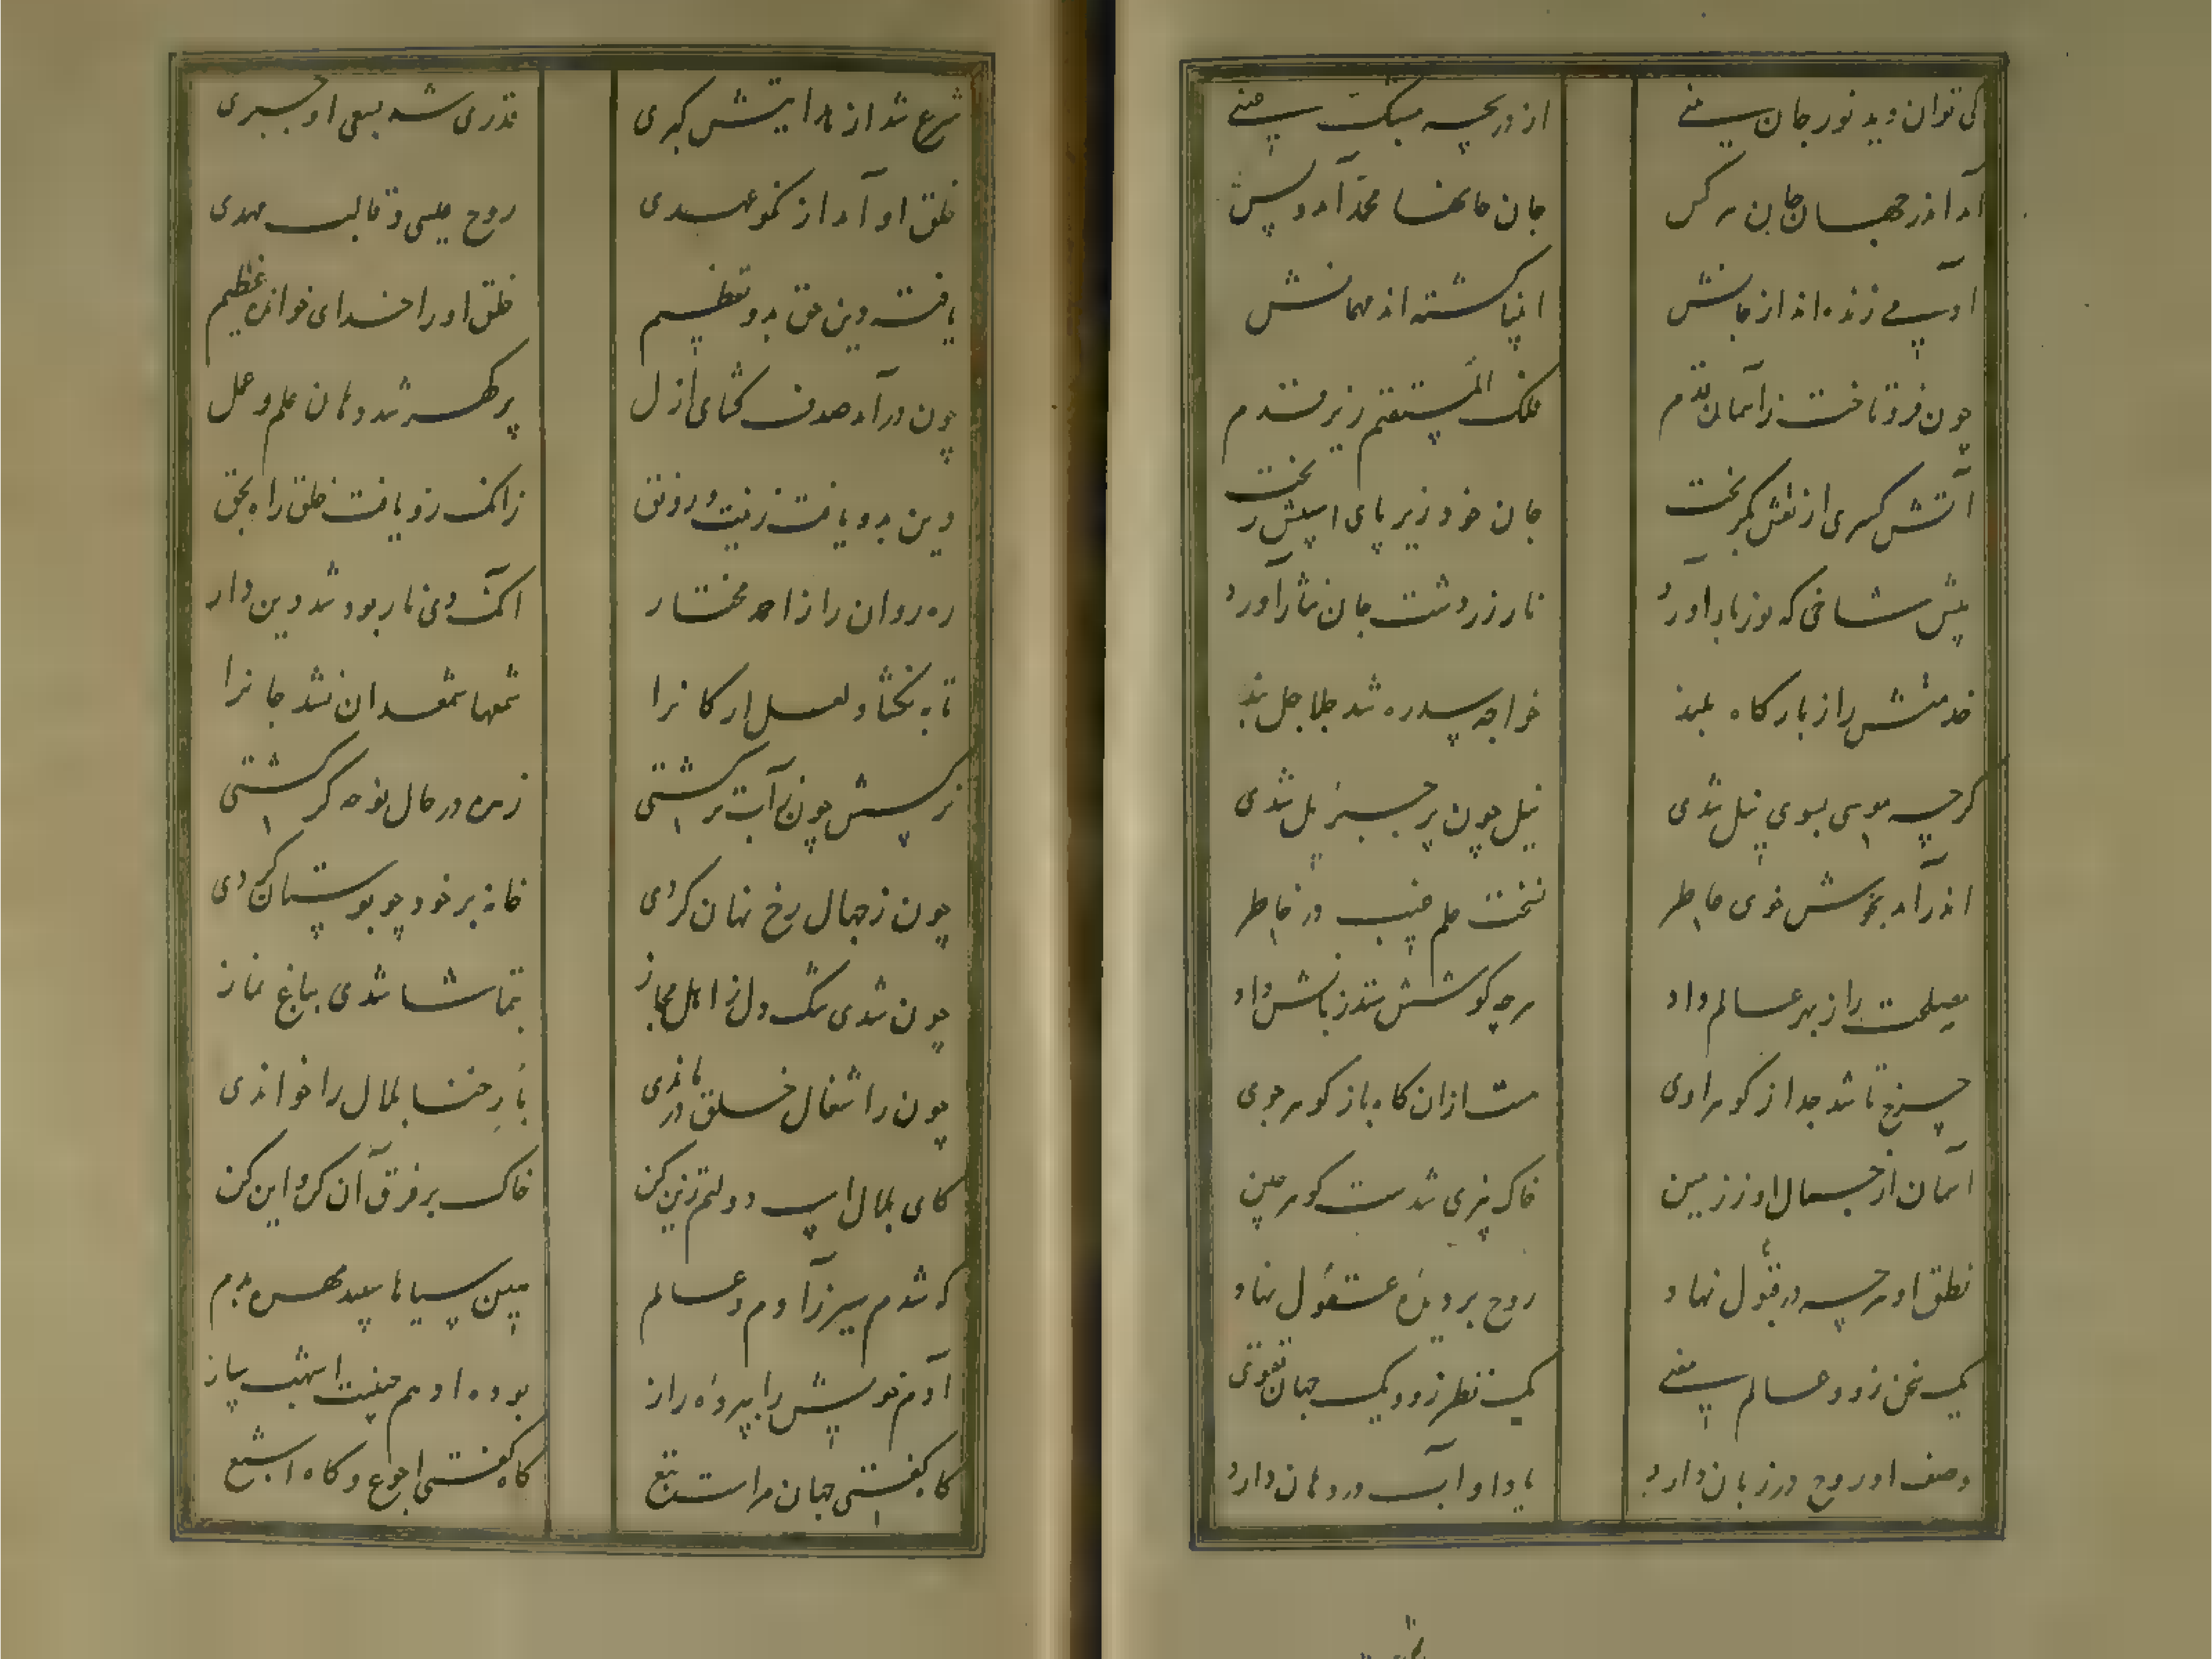 کی توان دید نور جان نبی از دریچه مشبک حسی
آمد اندر جهان جان هر کس جان جانها محمد آمد و بس
آدمی زنده اند از جانش انبیا گشته اند مهمانش
چون فرو تاخت ز آسمان قدم ملک المستقیم زیر قدم
آتش کسری از تفش بگریخت جان خود زیر پای اسپش ریخت
پیش شاخی که نور بار آورد نار زردشت جان نثار آورد
خدمتش را ز بارگاه بلند خواجه سدره شد جلاجل بند
گرچه موسی بسوی نیل شدی نیل چون پر جبرئیل شدی
اندر آمد بخوش خوی خاطر تخت علم غیب در خاطر
مصلحت را ز بهر عالم داد هرچه گوشش ستد زبانش داد
چرخ تا شد جدا ز گوهر اوی هست ازان گاه باز گوهر جوی
آسمان از جمال او ز زمین خاک بیزی شدست گوهر چین
نطق او هرچه در قبول نهاد روح بر دیده عقول نهاد
یک سخن زو و عالمی معنی یک نظر زو و یک جهان تقوی
وصف او روح در زبان دارد یاد او آب در دهان دارد
شرع شد از هدایتش کبری قدری شد بسعی او جبری
خلق او آمد از نکو عهدی روح عیسی و قالب مهدی
یافته دین حق بدو تعظیم خلق او را خدای خوانده عظیم
چون در آمد صدف گشای ازل پر گهر شد دهان علم و عمل
دین بدو یافت زینت و رونق زانک زو یافت خلق راه بحق
ره روان را ز احمد مختار آنک دی نار بود شد دین دار
تا نه بگشاد لعل او کانرا شمعها شمعدان نشد جانرا
نرگسش چون ز آب تر گشتی زهره در حال نوحه گر گشتی
چون ز جهال رخ نهان کردی خانه بر خود چو بوستان کردی
چون شدی تنگ دل ز اهل مجاز بتماشا شدی بباغ نماز
چون در اشغال خلق درماندی بارحنا بلال را خواندی
کای بلال اسب دولتم زین کن خاک بر فرق آن کن و این کن
که شدم سیر ز آدم و عالم
آدم خویش را بپرده راز
گاه گفتی جهان مراست تبع گاه گفتی اجوع و گاه اشبع